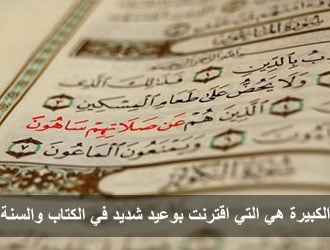 بُ بِالدِّينِ ۝١ فَذَٰلِكَ الَّذِي
وَلَا يَحُضُّ عَلَىٰ طَعَامِ الْمِسْكِينِ ۝٣
الَّذِينَ هُمْ عَن صَلَاتِهِمْ سَاهُونَ
وَيَمْنَعُونَ الْمَاعُونَ ۝٧
الكبيرة هي التي اقترنت بوعيد شديد في الكتاب والسنة